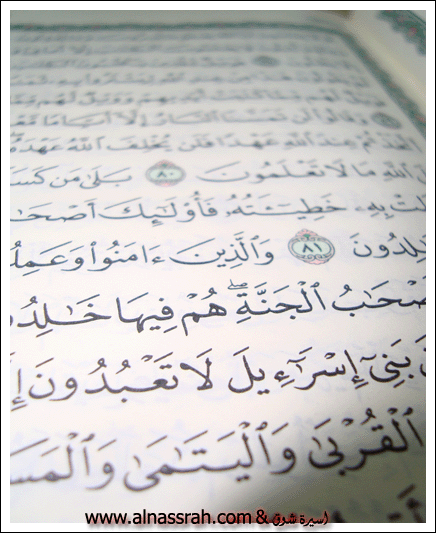 كَتَبَتْ أَيْدِيهِمْ وَوَيْلٌ لَّهُم
وَقَالُوا۟ لَن تَمَسَّنَا ٱلنَّارُ إِلَّآ أَيَّامًا
عِندَ ٱللَّهِ عَهْدًا فَلَن يُخْلِفَ ٱللَّهُ عَهْدَهُۥٓ
ٱللَّهِ مَا لَا تَعْلَمُونَ ٨٠ بَلَىٰ مَن كَسَ
تْ بِهِۦ خَطِيٓـَٔتُهُۥ فَأُو۟لَٰٓئِكَ أَصْحَـٰ
لِدُونَ ٨١ وَٱلَّذِينَ ءَامَنُوا۟ وَعَمِلُ
صْحَـٰبُ ٱلْجَنَّةِ ۖ هُمْ فِيهَا خَـٰلِدُ
بَنِىٓ إِسْرَٰٓءِيلَ لَا تَعْبُدُونَ إِ
ٱلْقُرْبَىٰ وَٱلْيَتَـٰمَىٰ وَٱلْمَسَـ
www.alnassrah.com & اسيرة شوق